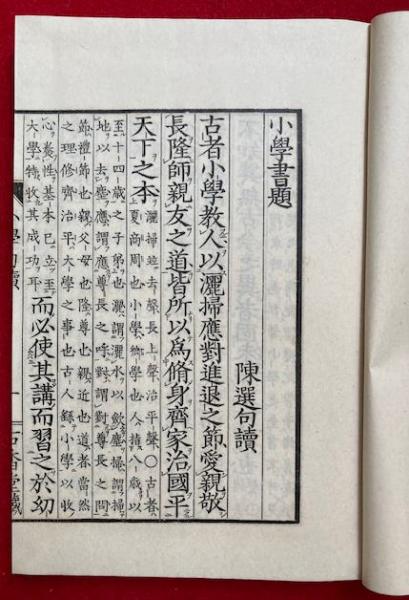 小學書題
陳選句讀
古者小學教人以灑掃應對進退之節愛親敬
長隆師親友之道皆所以為脩身齊家治國平
天下之本
灑掃竝去聲長上聲治平聲○古者
上夏商周也小學鄉學也人指八歲以
至十四歲之子弟也灑謂灑水以斂塵掃謂掃
地以去塵應謂應尊長之呼對謂對尊長之問
節禮節也親父母也隆尊也親近也道者當然
之理脩齊治平大學之事也古人繇小學以收
心養性基本已立至
大學特收其成功耳
而必使其講而習之於幼